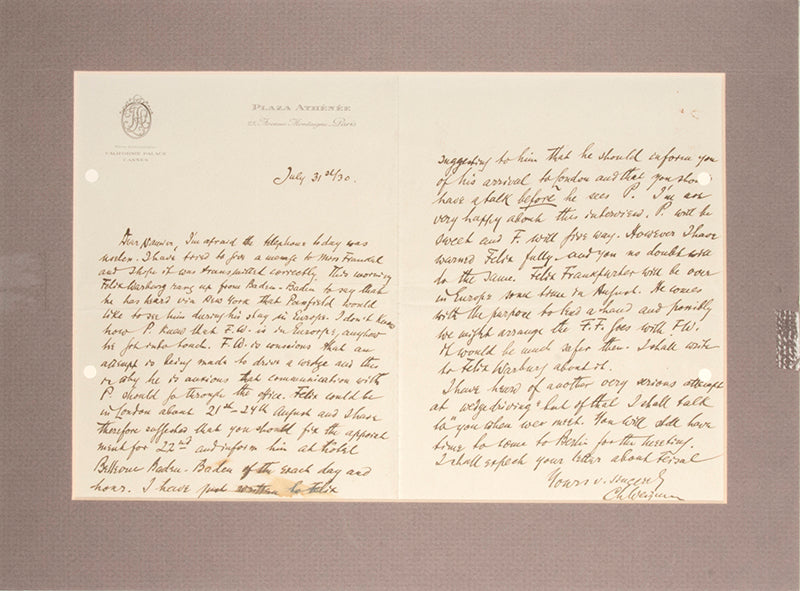 PLAZA ATHÉNÉE
25, Avenue Montaigne, Paris
CALIFORNIE PALACE
CANNES
July 31st/30.
Dear Namier, I'm afraid the telephone today was
useless. I have tried to give a message to Miss
and I hope it was transmitted correctly. This morning
Felix Warburg rang up from Baden-Baden to say that
he has heard via New York that Passfield would
like to see him during his stay in Europe. I don't know
how P. knew that F.W. is in Europe, anyhow
he got into touch. F.W. is conscious that an
attempt is being made to drive a wedge and this
is why he is anxious that communication with
P. should go through the office. Felix could be
in London about 21st-24th August and I have
therefore suggested that you should fix the appoint
ment for 22nd and inform him at Hotel
Bellevue Baden-Baden of the exact day and
hour. I have just written to Felix
suggesting to him that he should inform you
of his arrival to London and that you should
have a talk before he sees P. I'm not
very happy about this interview. P. will be
sweet and F. will give way. However I have
warned Felix fully and you no doubt will
do the same. Felix Frankfurter will be over
in Europe some time in August. He comes
with the purpose to lend a hand and possibly
we might arrange the F.F. goes with F.W.
It would be much safer then. I shall write
to Felix Warburg about it.
I have heard of another very serious attempt
at "wedgedriving" but of that I shall talk
to you when we meet. You will still have
time to come to Berlin for the meeting.
I shall expect your letters about Feisal
Yours v. sincerely
Ch Weizmann